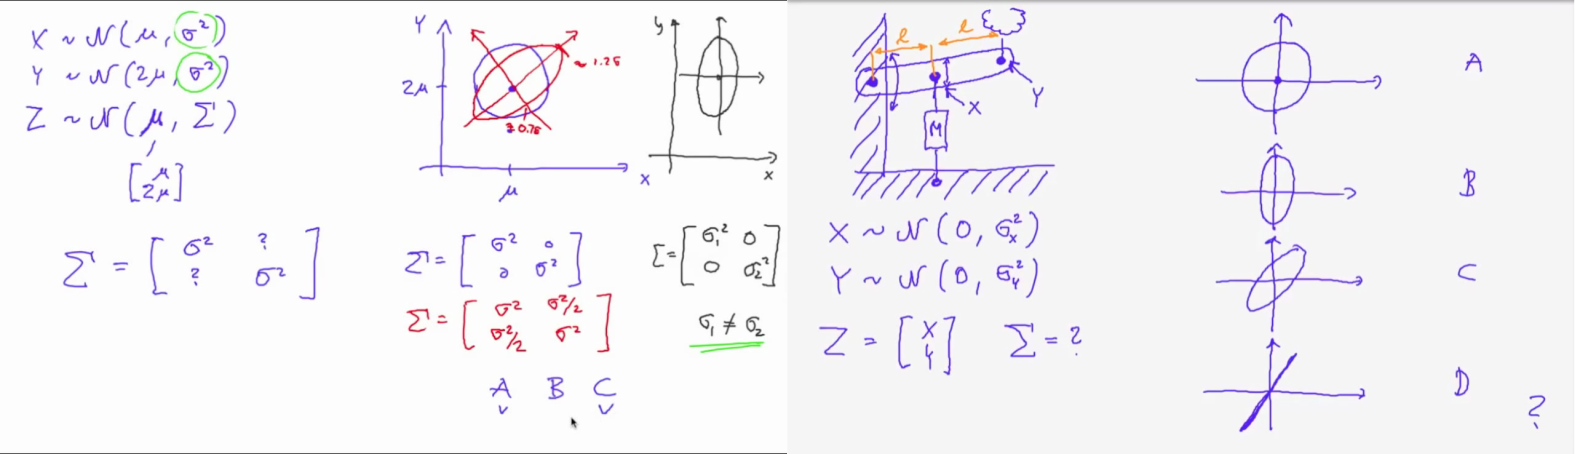 X ~ N(μ, σ²)
Y ~ N(2μ, σ²)
Z ~ N(μ, Σ)
[μ
2μ]
Σ = [σ² ?
? σ²]
Y
2μ
μ
X
≈ 1.25
≈ 0.75
Σ = [σ² 0
0 σ²]
Σ = [σ² σ²/2
σ²/2 σ²]
A B C
y
x
Σ = [σ₁² 0
0 σ₂²]
σ₁ ≠ σ₂
ℓ ℓ
X
Y
M
X ~ N(0, σₓ²)
Y ~ N(0, σ_Y²)
Z = [X
Y] Σ = ?
A
B
C
D
?